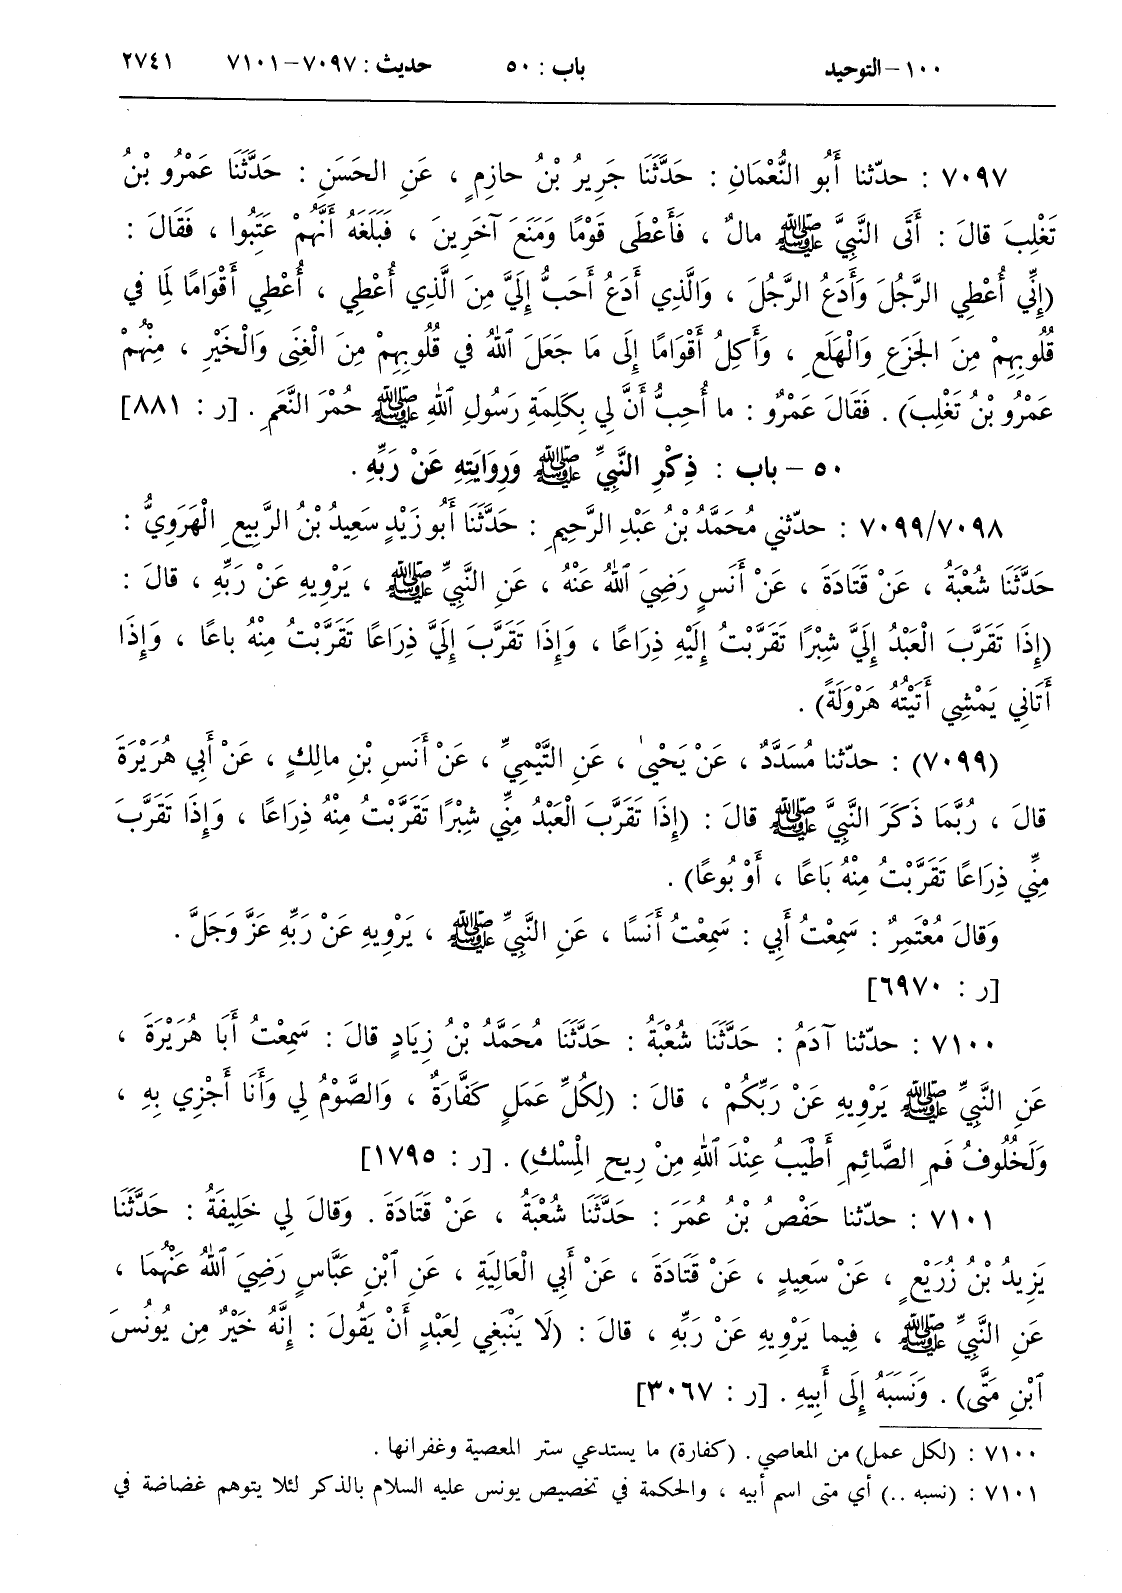 ١٠٠ – التوحيد باب : ٥٠ حديث : ٧٠٩٧–٧١٠١ ٢٧٤١
٧٠٩٧ : حدّثنا أَبُو النُّعْمَانِ : حَدَّثَنَا جَرِيرُ بْنُ حازِمٍ ، عَنِ الحَسَنِ : حَدَّثَنَا عَمْرُو بْنُ
تَغْلِبَ قالَ : أَتَى النَّبِيَّ ﷺ مالٌ ، فَأَعْطَى قَوْمًا وَمَنَعَ آخَرِينَ ، فَبَلَغَهُ أَنَّهُمْ عَتَبُوا ، فَقَالَ :
(إِنِّي أُعْطِي الرَّجُلَ وَأَدَعُ الرَّجُلَ ، وَالَّذِي أَدَعُ أَحَبُّ إِلَيَّ مِنَ الَّذِي أُعْطِي ، أُعْطِي أَقْوَامًا لِمَا في
قُلُوبِهِمْ مِنَ الجَزَعِ وَالْهَلَعِ ، وَأَكِلُ أَقْوَامًا إِلَى ما جَعَلَ ٱللهُ في قُلُوبِهِمْ مِنَ الْغِنَى وَالْخَيْرِ ، مِنْهُمْ
عَمْرُو بْنُ تَغْلِبَ) . فَقَالَ عَمْرٌو : ما أُحِبُّ أَنَّ لِي بِكَلِمَةِ رَسُولِ ٱللهِ ﷺ حُمْرَ النَّعَمِ . [ر : ٨٨١]
٥٠ – باب : ذِكْرِ النَّبِيِّ ﷺ وَرِوَايَتِهِ عَنْ رَبِّهِ .
٧٠٩٩/٧٠٩٨ : حدّثني مُحَمَّدُ بْنُ عَبْدِ الرَّحِيمِ : حَدَّثَنَا أَبُو زَيْدٍ سَعِيدُ بْنُ الرَّبِيعِ الْهَرَوِيُّ :
حَدَّثَنَا شُعْبَةُ ، عَنْ قَتَادَةَ ، عَنْ أَنَسٍ رَضِيَ ٱللهُ عَنْهُ ، عَنِ النَّبِيِّ ﷺ ، يَرْوِيهِ عَنْ رَبِّهِ ، قالَ :
(إِذَا تَقَرَّبَ الْعَبْدُ إِلَيَّ شِبْرًا تَقَرَّبْتُ إِلَيْهِ ذِرَاعًا ، وَإِذَا تَقَرَّبَ إِلَيَّ ذِرَاعًا تَقَرَّبْتُ مِنْهُ باعًا ، وَإِذَا
أَتَانِي يَمْشِي أَتَيْتُهُ هَرْوَلَةً) .
(٧٠٩٩) : حدّثنا مُسَدَّدٌ ، عَنْ يَحْيىٰ ، عَنِ التَّيْمِيِّ ، عَنْ أَنَسِ بْنِ مالِكٍ ، عَنْ أَبِي هُرَيْرَةَ
قالَ ، رُبَّمَا ذَكَرَ النَّبِيَّ ﷺ قالَ : (إِذَا تَقَرَّبَ الْعَبْدُ مِنِّي شِبْرًا تَقَرَّبْتُ مِنْهُ ذِرَاعًا ، وَإِذَا تَقَرَّبَ
مِنِّي ذِرَاعًا تَقَرَّبْتُ مِنْهُ بَاعًا ، أَوْ بُوعًا) .
وَقالَ مُعْتَمِرٌ : سَمِعْتُ أَبِي : سَمِعْتُ أَنَسًا ، عَنِ النَّبِيِّ ﷺ ، يَرْوِيهِ عَنْ رَبِّهِ عَزَّ وَجَلَّ .
[ر : ٦٩٧٠]
٧١٠٠ : حدّثنا آدَمُ : حَدَّثَنَا شُعْبَةُ : حَدَّثَنَا مُحَمَّدُ بْنُ زِيَادٍ قالَ : سَمِعْتُ أَبَا هُرَيْرَةَ ،
عَنِ النَّبِيِّ ﷺ يَرْوِيهِ عَنْ رَبِّكُمْ ، قالَ : (لِكُلِّ عَمَلٍ كَفَّارَةٌ ، وَالصَّوْمُ لِي وَأَنَا أَجْزِي بِهِ ،
وَلَخُلُوفُ فَمِ الصَّائِمِ أَطْيَبُ عِنْدَ ٱللهِ مِنْ رِيحِ الْمِسْكِ) . [ر : ١٧٩٥]
٧١٠١ : حدّثنا حَفْصُ بْنُ عُمَرَ : حَدَّثَنَا شُعْبَةُ ، عَنْ قَتَادَةَ . وَقالَ لِي خَلِيفَةُ : حَدَّثَنَا
يَزِيدُ بْنُ زُرَيْعٍ ، عَنْ سَعِيدٍ ، عَنْ قَتَادَةَ ، عَنْ أَبِي الْعَالِيَةِ ، عَنِ ٱبْنِ عَبَّاسٍ رَضِيَ ٱللهُ عَنْهُمَا ،
عَنِ النَّبِيِّ ﷺ ، فِيما يَرْوِيهِ عَنْ رَبِّهِ ، قالَ : (لَا يَنْبَغِي لِعَبْدٍ أَنْ يَقُولَ : إِنَّهُ خَيْرٌ مِن يُونُسَ
ٱبْنِ مَتَّى) . وَنَسَبَهُ إِلَى أَبِيهِ . [ر : ٣٠٦٧]
٧١٠٠ : (لكل عمل) من المعاصي . (كفارة) ما يستدعي ستر المعصية وغفرانها .
٧١٠١ : (نسبه ..) أي متى اسم أبيه ، والحكمة في تخصيص يونس عليه السلام بالذكر لئلا يتوهم غضاضة في